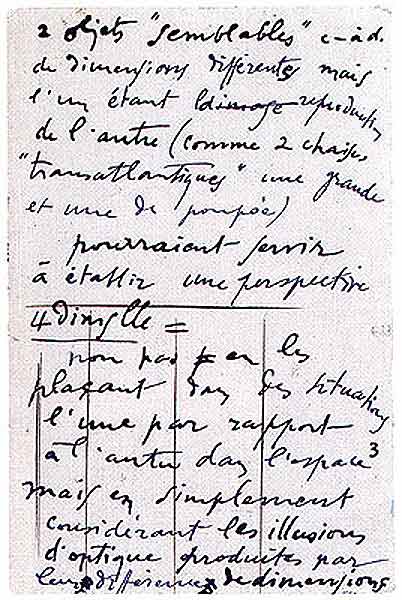 2 objets "semblables" c-à d.
de dimensions différentes mais
l'un étant l'image reproduction
de l'autre (comme 2 chaises
"transatlantiques" une grande
et une de poupée)
pourraient servir
à établir une perspective
4 dimslle =
non pas en les
plaçant dans des situations
l'une par rapport
à l'autre dans l'espace 3
mais en simplement
considérant les illusions
d'optique produites par
leurs différence de dimensions